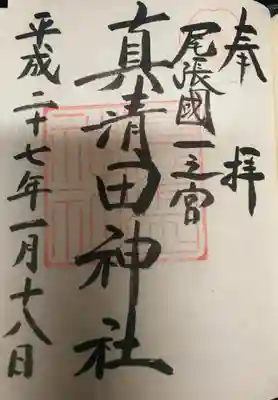 奉拝
尾張國一之宮
真清田神社
平成二十七年一月十八日